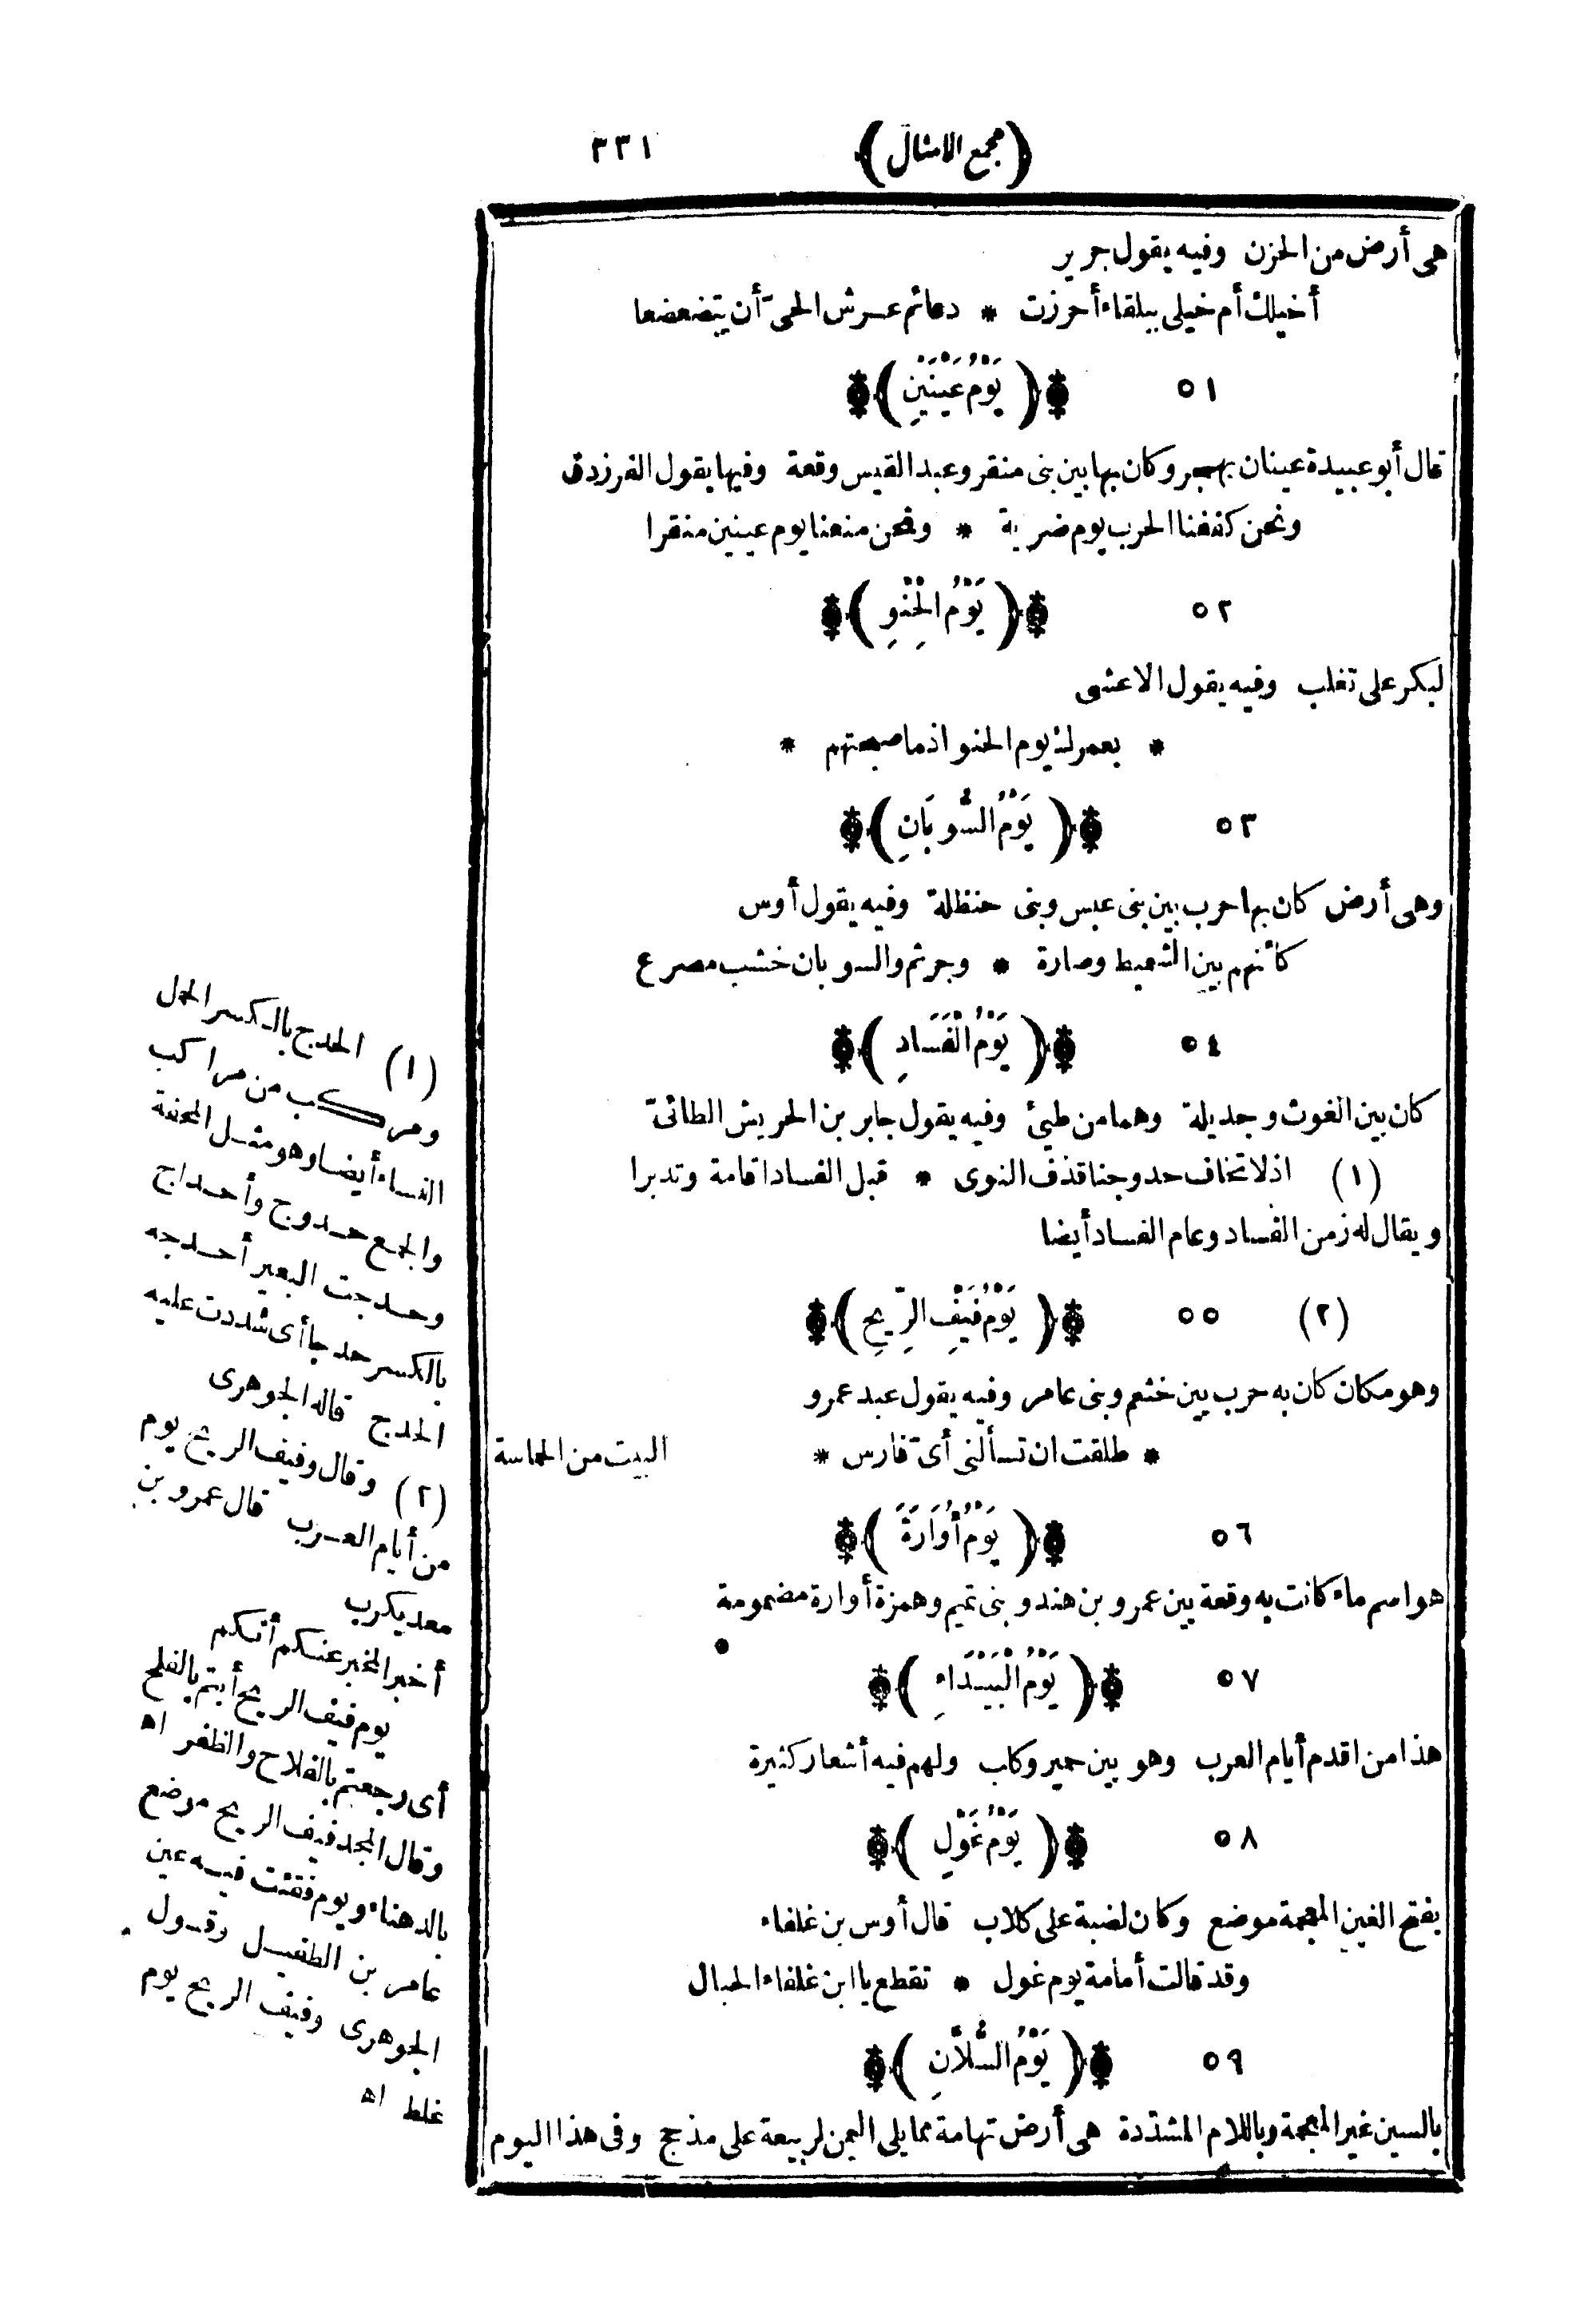 (مجمع الامثال) ٣٣١
هى أرض من الحزن وفيه يقول جرير
أخيلك أم خيلى ببلقاء أحرزت * دعائم عرش الحىّ أن يتضعضعا
٥١ (يَوْمُ عَيْنَيْنِ)
قال أبو عبيدة عينان بهجر وكان بها بين بنى منقر وعبد القيس وقعة وفيها يقول الفرزدق
ونحن كففنا الحرب يوم ضرية * ونحن منعنا يوم عينين منقرا
٥٢ (يَوْمُ الْحِنْوِ)
لبكر على تغلب وفيه يقول الاعشى
* بعمرك يوم الحنو اذ ما صبحتهم *
٥٣ (يَوْمُ السُّوبَانِ)
وهى أرض كان بها حرب بين بنى عبس وبنى حنظلة وفيه يقول أوس
كأنهم بين الشميط وصارة * وجرثم والسوبان خشب مصرع
٥٤ (يَوْمُ الْفَسَادِ)
كان بين الغوث وجديلة وهما من طيئ وفيه يقول جابر بن الحريش الطائىّ
(١) اذ لا تخاف حدوجنا قذف النوى * قبل الفساد اقامة وتدبرا
ويقال له زمن الفساد وعام الفساد أيضا
(٢) ٥٥ (يَوْمُ فَيْفِ الرِّيحِ)
وهو مكان كان به حرب بين خثعم وبنى عامر وفيه يقول عبد عمرو
* طلقت ان تسألنى أىّ فارس * البيت من الحماسة
٥٦ (يَوْمُ أُوَارَةَ)
هو اسم ماء كانت به وقعة بين عمرو بن هند وبنى تميم وهمزة أوارة مضمومة
٥٧ (يَوْمُ الْبَيْدَاءِ)
هذا من اقدم أيام العرب وهو بين حمير وكلب ولهم فيه أشعار كثيرة
٥٨ (يَوْمُ غَوْلٍ)
بفتح الغين المعجمة موضع وكان لضبة على كلاب قال أوس بن غلفاء
وقد قالت أمامة يوم غول * تقطع يا ابن غلفاء الحبال
٥٩ (يَوْمُ السُّلاَّنِ)
بالسين غير المعجمة وباللام المشدّدة هى أرض تهامة مما يلى اليمن لربيعة على مذحج وفى هذا اليوم
(١) الحدج بالكسر الحمل
ومركب من مراكب
النساء أيضا وهو مثل المحفة
والجمع حدوج وأحداج
وحدجت البعير أحدجه
بالكسر حدجا أى شددت عليه
الحدج قاله الجوهرى
(٢) وقال وفيف الريح يوم
من أيام العرب قال عمرو بن
معديكرب
أخبر المخبر عنكم أنكم
يوم فيف الريح أبتم بالفلج
أى رجعتم بالفلاح والظفر اه
وقال المجد فيف الريح موضع
بالدهناء ويوم فقئت فيه عين
عامر بن الطفيل وقول
الجوهرى وفيف الريح يوم
غلط اه